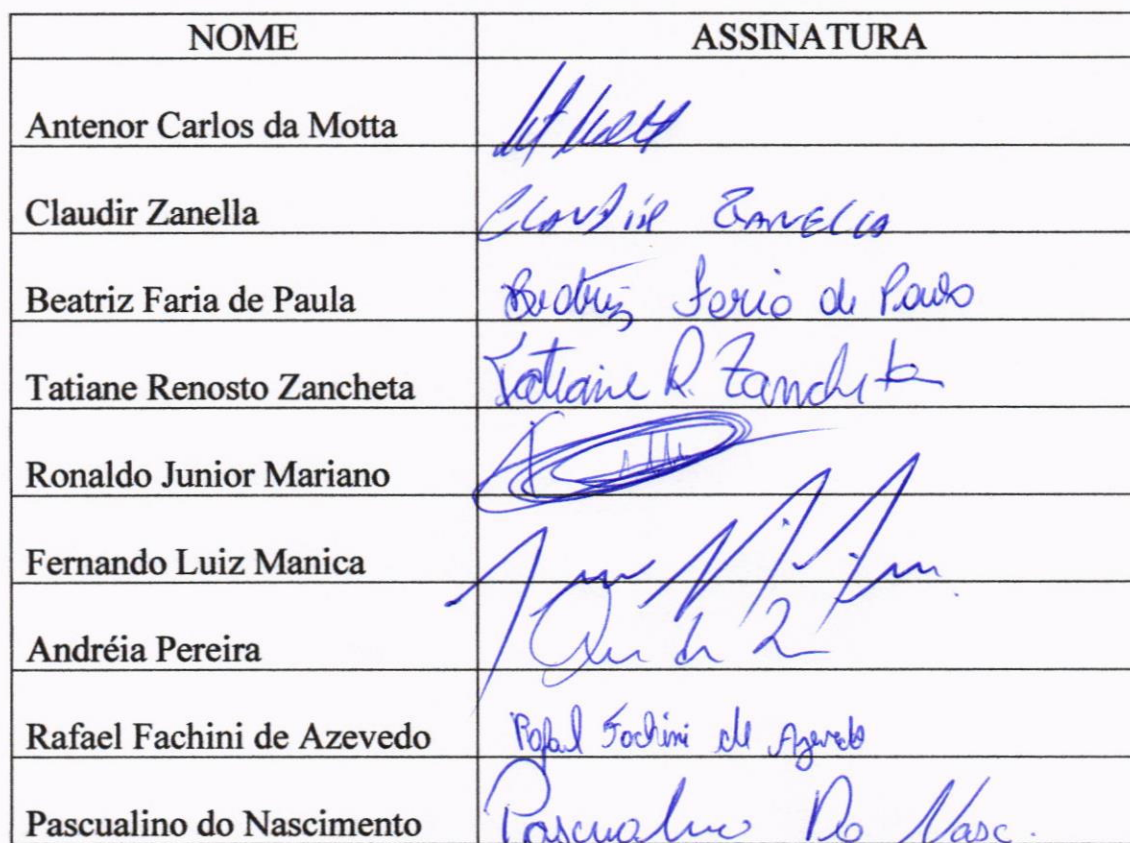 NOME ASSINATURA
Antenor Carlos da Motta
Claudir Zanella Claudir Zanella
Beatriz Faria de Paula Beatriz Faria de Paula
Tatiane Renosto Zancheta Tatiane R. Zancheta
Ronaldo Junior Mariano
Fernando Luiz Manica
Andréia Pereira
Rafael Fachini de Azevedo Rafael Fachini de Azevedo
Pascualino do Nascimento Pascualino Do Nasc.